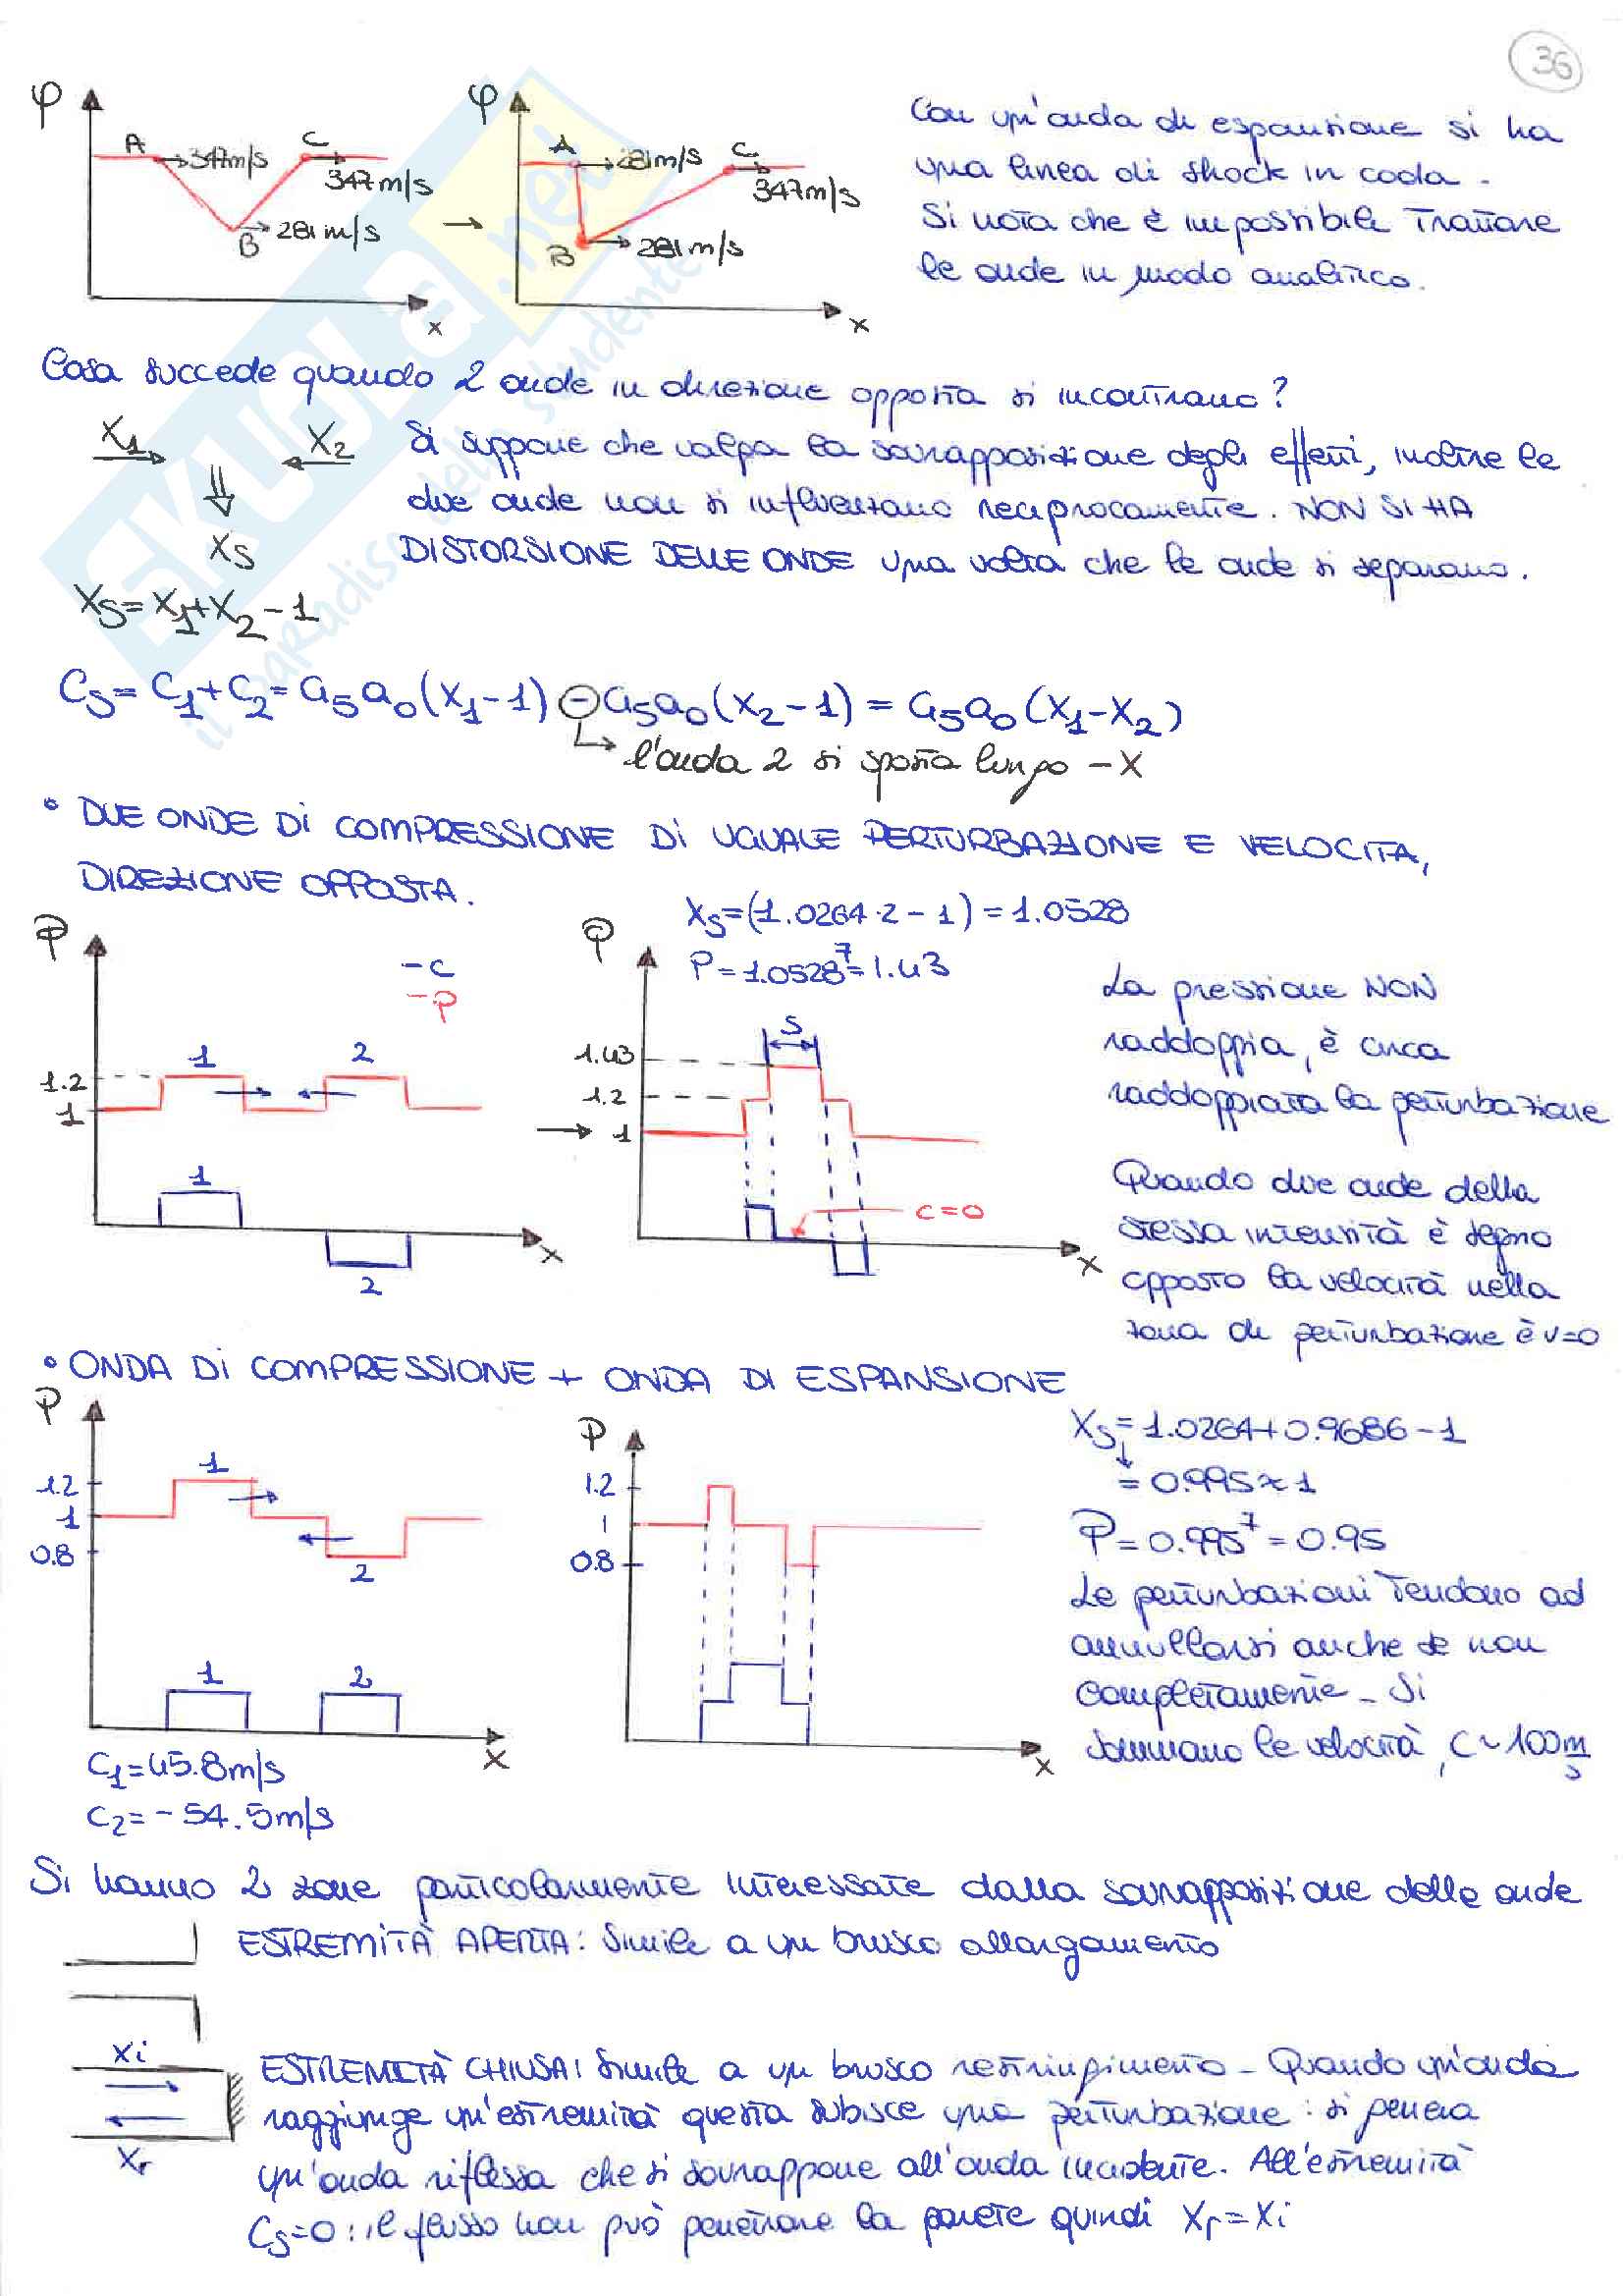 36
φ
A
347m/s
C
347m/s
B
281m/s
x
φ
A
281m/s
C
347m/s
B
281m/s
x
Con un'onda di espansione si ha
una linea di shock in coda.
Si nota che è impossibile trattare
le onde in modo analitico.
Cosa succede quando 2 onde in direzione opposta si incontrano?
X1
X2
XS
Si suppone che valga la sovrapposizione degli effetti, inoltre le
due onde non si influenzano reciprocamente. NON SI HA
DISTORSIONE DELLE ONDE una volta che le onde si separano.
XS=X1+X2-1
CS=C1+C2=G5a0(X1-1)-G5a0(X2-1)=G5a0(X1-X2)
l'onda 2 si sposta lungo -X
• DUE ONDE DI COMPRESSIONE DI UGUALE PERTURBAZIONE E VELOCITA,
DIREZIONE OPPOSTA.
P
-C
-P
1.2
1
1
2
1
2
x
P
XS=(1.0264·2-1)=1.0528
P=1.0528^7=1.43
S
1.43
1.2
1
C=0
x
La pressione NON
raddoppia, è circa
raddoppiata la perturbazione
Quando due onde della
stessa intensità è segno
opposto la velocità nella
zona di perturbazione è v=0
• ONDA DI COMPRESSIONE + ONDA DI ESPANSIONE
P
1.2
1
0.8
1
2
1
2
x
C1=45.8m/s
C2=-54.5m/s
P
1.2
1
0.8
x
XS=1.0264+0.9686-1
=0.995≈1
P=0.995^7=0.95
Le perturbazioni tendono ad
annullarsi anche se non
completamente. Si
sommano le velocità, C~100m/s
Si hanno 2 zone particolarmente interessate dalla sovrapposizione delle onde
ESTREMITÀ APERTA: Simile a un brusco allargamento
Xi
Xr
ESTREMITÀ CHIUSA: Simile a un brusco restringimento - Quando un'onda
raggiunge un'estremità questa subisce una perturbazione: si genera
un'onda riflessa che si sovrappone all'onda incidente. All'estremità
CS=0: il flusso non può penetrare la parete quindi Xr=Xi
SKUOLA.net
il paradiso dello studente